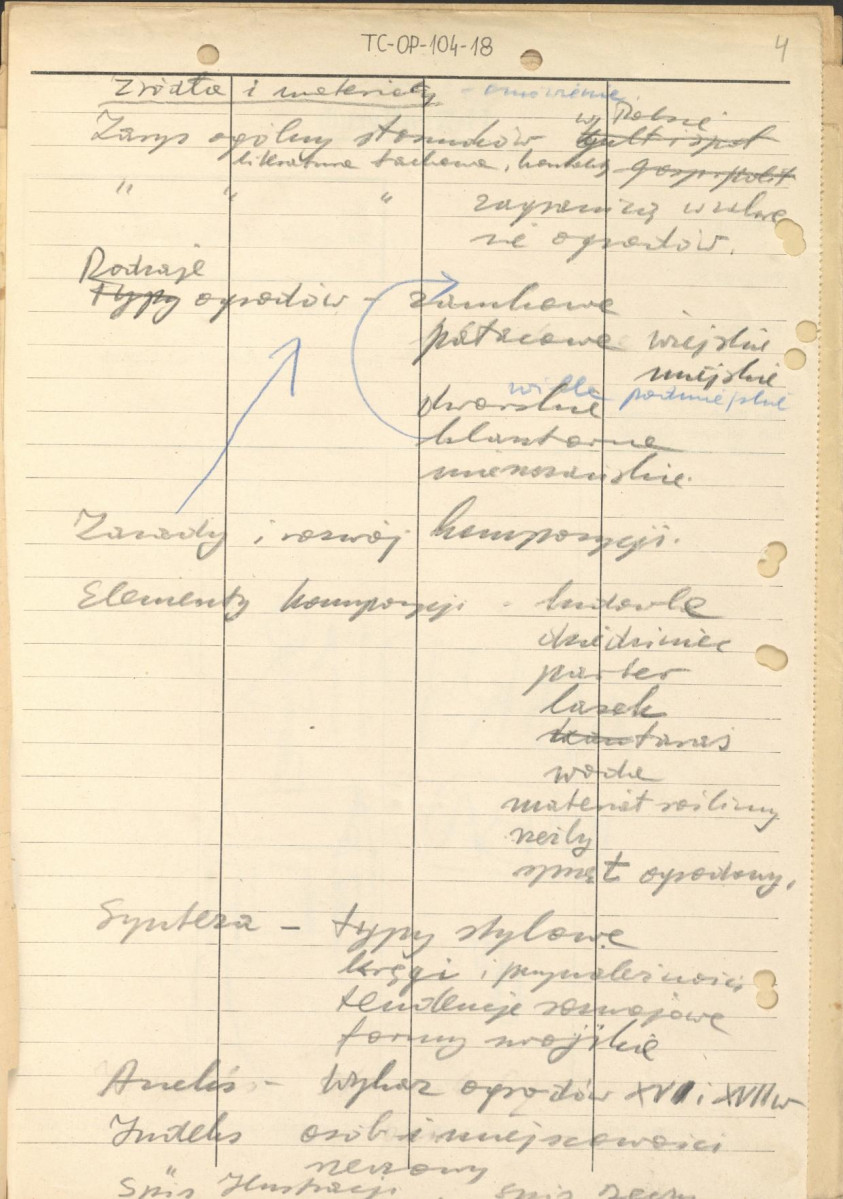 TC-OP-104-18
4
Źródła i materiały - omówienie.
w Polsce
Zarys ogólny stosunków kult i społ
literatura fachowa, kontakty gosp. i polit
" " " zagranicą w zakre
sie ogrodów.
Rodzaje
typy ogrodów - zamkowe
pałacowe wiejskie
miejskie
wille podmiejskie
dworskie
klasztorne
mieszczańskie.
Zasady i rozwój kompozycji.
Elementy kompozycji - budowle
dziedziniec
parter
lasek
taras
woda
materiał roślinny
rzeźby
sprzęt ogrodowy,
Synteza - typy stylowe
kręgi i przynależności
tendencje rozwojowe
formy swojskie
Aneks - Wykaz ogrodów XVI i XVII w
Indeks osób i miejscowości
rzeczowy
Spis Ilustracji, spis rzeczy